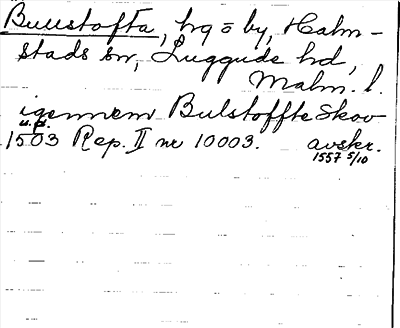 Bullstofta, hg o by, Halm-
stads sn, Luggude hd,
Malm. l.
igennem Bulstoffte Skov
u.p.
1503 Rep. II nr 10003. avskr.
1557 5/10